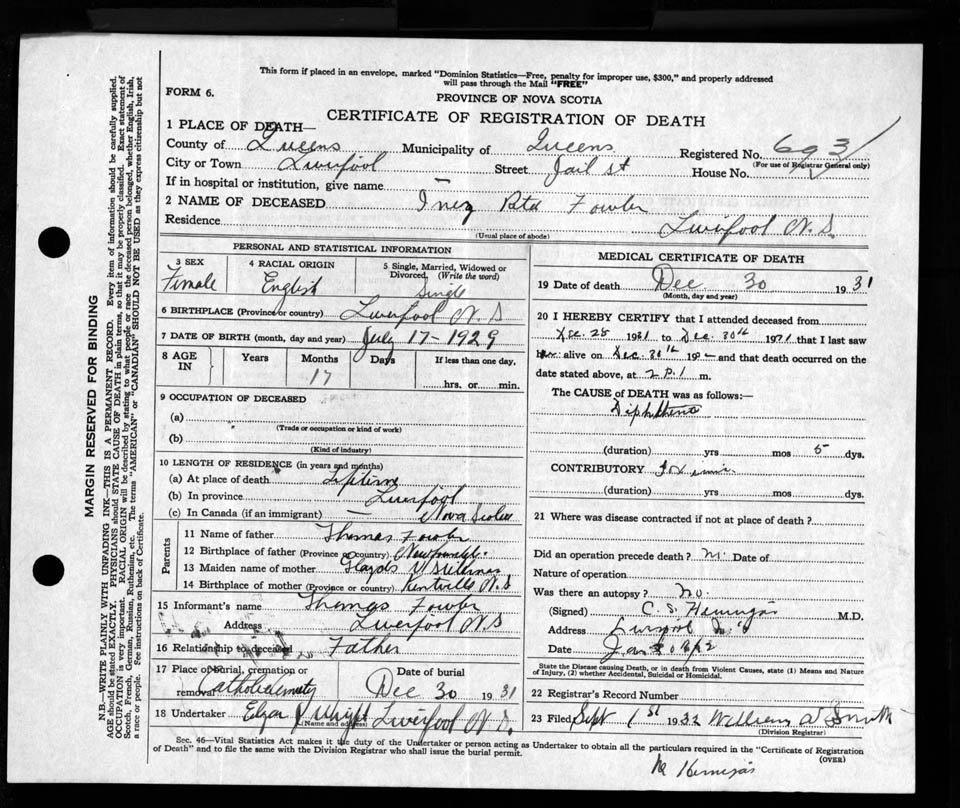 This form if placed in an envelope, marked "Dominion Statistics—Free, penalty for improper use, $300," and properly addressed
will pass through the Mail "FREE"
FORM 6.
PROVINCE OF NOVA SCOTIA
CERTIFICATE OF REGISTRATION OF DEATH
1 PLACE OF DEATH—
County of Queens Municipality of Queens Registered No. 693
(For use of Registrar General only)
City or Town Liverpool Street Jail St House No.
If in hospital or institution, give name —
2 NAME OF DECEASED Inez Reta Fowler
Residence Liverpool N.S.
(Usual place of abode)
PERSONAL AND STATISTICAL INFORMATION
3 SEX Female
4 RACIAL ORIGIN English
5 Single, Married, Widowed or Divorced, (Write the word) Single
6 BIRTHPLACE (Province or country) Liverpool N S
7 DATE OF BIRTH (month, day and year) July 17-1929
8 AGE IN Years Months Days If less than one day,
17 hrs. or min.
9 OCCUPATION OF DECEASED
(a)
(Trade or occupation or kind of work)
(b)
(Kind of industry)
10 LENGTH OF RESIDENCE (in years and months)
(a) At place of death Lifetime
(b) In province Liverpool
(c) In Canada (if an immigrant) — Nova Scotia
Parents
11 Name of father Thomas Fowler
12 Birthplace of father (Province or country)
13 Maiden name of mother Gladys
14 Birthplace of mother (Province or country) Kentville N.S
15 Informant's name Thomas Fowler
Address Liverpool NS
16 Relationship to deceased Father
17 Place of burial, cremation or removal Catholic Cemetery
Date of burial Dec 30 1931
18 Undertaker Wright Liverpool N.S.
(Name and address)
MEDICAL CERTIFICATE OF DEATH
19 Date of death Dec 30 1931
(Month, day and year)
20 I HEREBY CERTIFY that I attended deceased from
Dec. 28 1931 to Dec. 30th 1931 that I last saw
alive on Dec. 30th 19 and that death occurred on the
date stated above, at 2 P. m.
The CAUSE OF DEATH was as follows:—
Diphtheria
(duration) yrs mos 5 dys.
CONTRIBUTORY
(duration) yrs mos dys.
21 Where was disease contracted if not at place of death?
Did an operation precede death? Date of
Nature of operation
Was there an autopsy? No.
(Signed) C. S. M.D.
Address Liverpool
Date Jan
State the Disease causing Death, or in death from Violent Causes, state (1) Means and Nature
of Injury, (2) whether Accidental, Suicidal or Homicidal.
22 Registrar's Record Number
23 Filed Sept 1st 1932 William Smith
(Division Registrar)
Sec. 46—Vital Statistics Act makes it the duty of the Undertaker or person acting as Undertaker to obtain all the particulars required in the "Certificate of Registration
of Death" and to file the same with the Division Registrar who shall issue the burial permit.
(OVER)
MARGIN RESERVED FOR BINDING
N.B.—WRITE PLAINLY WITH UNFADING INK—THIS IS A PERMANENT RECORD. Every item of information should be carefully supplied.
AGE should be stated EXACTLY. PHYSICIANS should STATE CAUSE OF DEATH in plain terms, so that it may be properly classified. Exact statement of
OCCUPATION is very important. RACIAL ORIGIN will be described by stating to what people or race the deceased person belonged, whether English, Irish,
Scotch, French, German, Russian, Ruthenian, etc. The terms "AMERICAN" or "CANADIAN" SHOULD NOT BE USED as they express citizenship but not
a race or people. See instructions on back of Certificate.